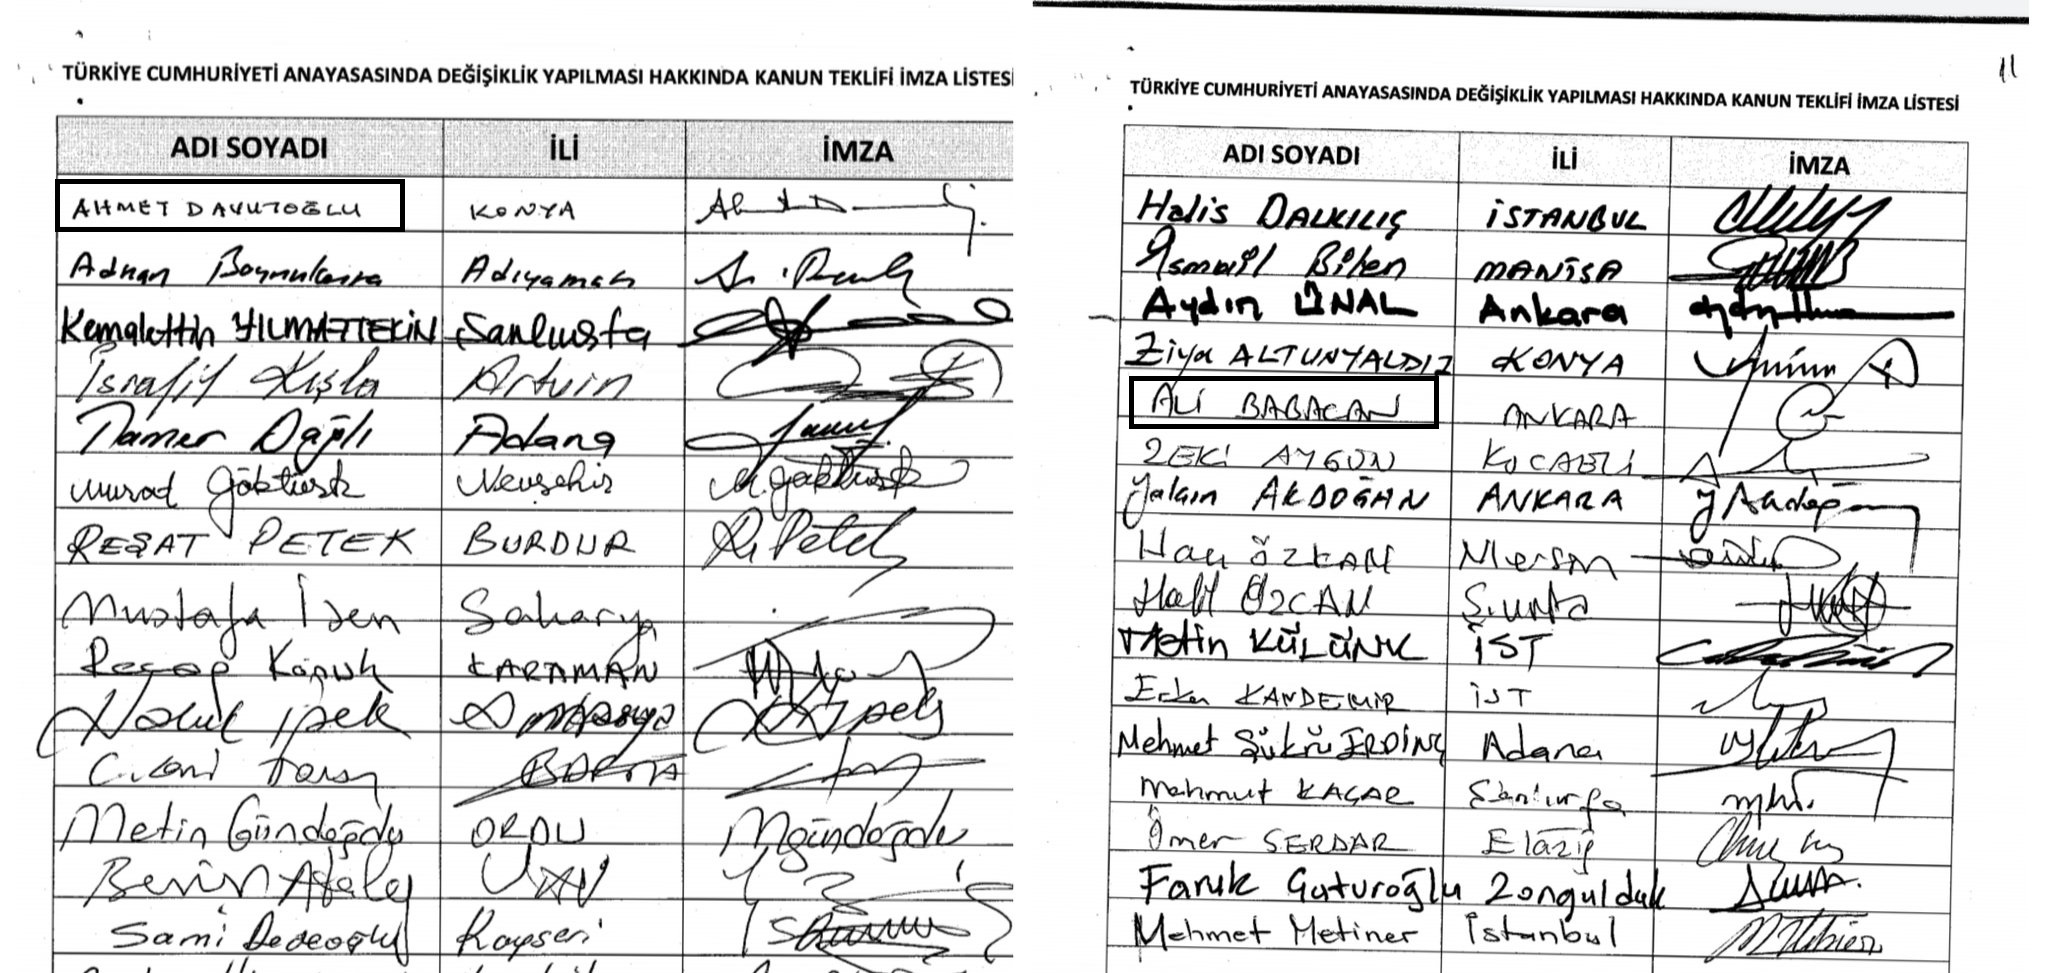 TÜRKİYE CUMHURİYETİ ANAYASASINDA DEĞİŞİKLİK YAPILMASI HAKKINDA KANUN TEKLİFİ İMZA LİSTESİ
ADI SOYADI İLİ İMZA
AHMET DAVUTOĞLU KONYA
Adnan Boynukara Adıyaman
Kemalettin YILMAZTEKİN Şanlıurfa
İsrafil Kışla Artvin
Tamer Dağlı Adana
Murad Göktürk Nevşehir M. Göktürk
REŞAT PETEK BURDUR R. Petek
Mustafa İsen Sakarya
Recep Konuk KARAMAN
Haluk ipek Amasya H. ipek
BARTIN
Metin Gündoğdu ORDU MGündoğdu
Sami Dedeoğlu Kayseri
11
TÜRKİYE CUMHURİYETİ ANAYASASINDA DEĞİŞİKLİK YAPILMASI HAKKINDA KANUN TEKLİFİ İMZA LİSTESİ
ADI SOYADI İLİ İMZA
Halis DALKILIÇ İSTANBUL
İsmail Bilen MANİSA
Aydın ÜNAL Ankara
Ziya ALTUNYALDIZ KONYA
ALİ BABACAN ANKARA
ZEKİ AYGÜN KOCAELİ
Yalçın AKDOĞAN ANKARA Y Akdoğan
Hacı ÖZKAN Mersin
Halil ÖZCAN Ş.urfa
Metin KÜLÜNK İST
Erkan KANDEMİR İST
Mehmet ŞükrüERDİNÇ Adana
Mahmut KAÇAR Şanlıurfa
Ömer SERDAR Elazığ
Faruk Çaturoğlu Zonguldak
Mehmet Metiner İstanbul